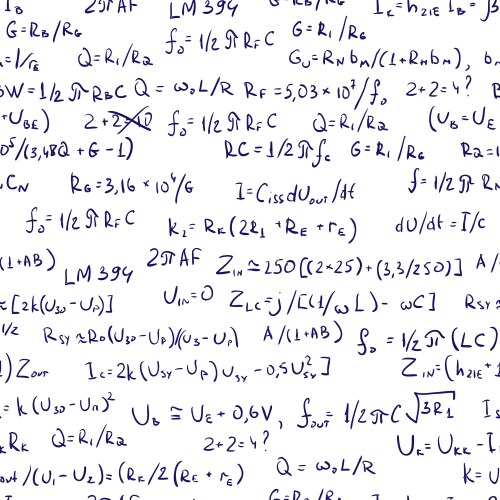 I_B 2πAF LM 394 G=R_B/R_G I_K=h_21E I_B = β
G=R_B/R_G f_0=1/2πR_FC G=R_1/R_G
=1/r_E Q=R_1/R_2 G_U=R_N b_M/(1+R_M b_M), b_M
BW=1/2πR_BC Q=ω_0L/R R_F=5,03×10^7/f_0 2+2=4? B
+U_BE) 2+2=10 f_0=1/2πR_FC Q=R_1/R_2 (U_B=U_E
0^5/(3,48Q+G-1) RC=1/2πf_c G=R_1/R_G R_2=1
C_N R_G=3,16×10^4/G I=C_iss dU_out/dt f=1/2πR_N
f_0=1/2πR_FC k_2=R_K(2R_1+R_E+r_E) dU/dt=I/C
(1+AB) LM 394 2πAF Z_IN≃250[(2×25)+(3,3/250)] A/(
≈[2k(U_30-U_P)] U_IN=0 Z_LC=j/[(1/ωL)-ωC] R_SY≈
1/2 R_SY≈R_0(U_30-U_P)/(U_3-U_P) A/(1+AB) f_0=1/2π(LC)
)Z_OUT I_C=2k(U_SY-U_P)U_SY-0,5U_SY^2] Z_IN=(h_21E+1
=k(U_30-U_P)^2 U_B≅U_E+0,6V, f_OUT=1/2πC√3R_1 I_S
R_K Q=R_1/R_2 2+2=4? U_K=U_KK-I
out/(U_1-U_2)=(R_K/2(R_E+r_E) Q=ω_0L/R k=U